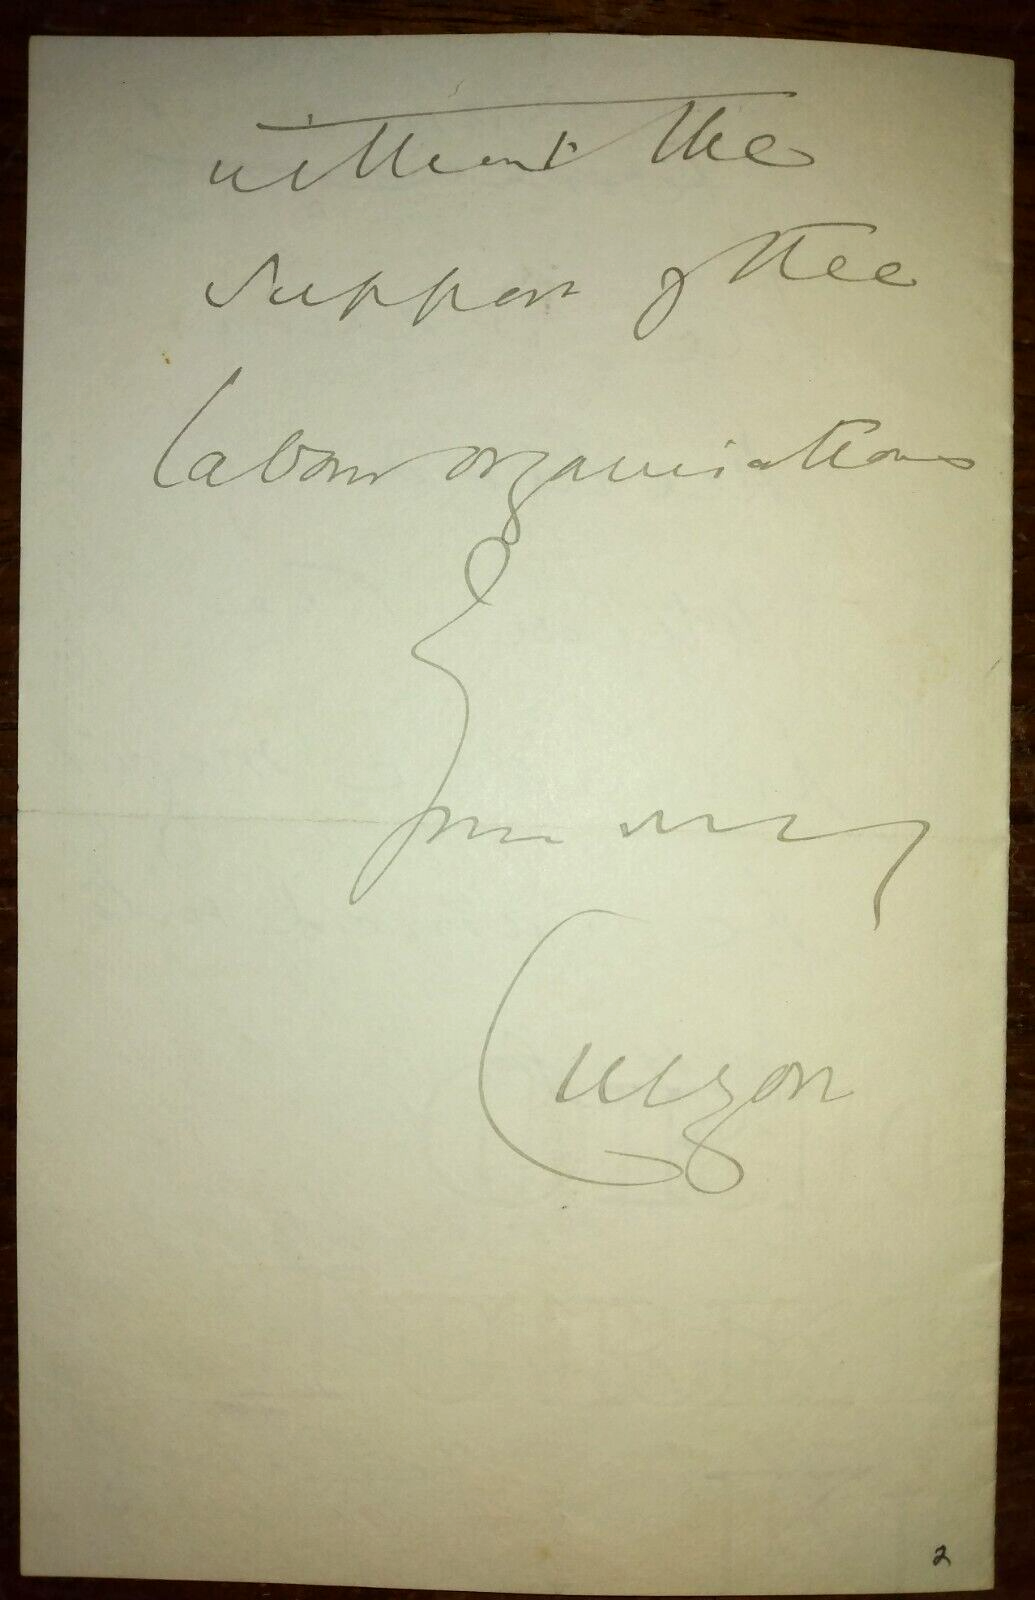 without the
support of the
Labour organisations
Yours sincerely
Curzon
2